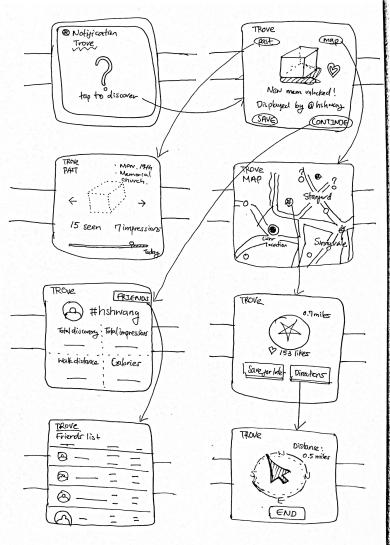 Notification
Trove
?
tap to discover
TROVE
past
map
New mem unlocked!
Displayed by @hshwang
SAVE
CONTINUE
TROVE
PAST
· Mon. 19th
· Memorial
church.
15 seen 7 impressions
Today
TROVE
MAP
?
?
Stanford
Curr
location
Sunnyvale
TROVE
FRIENDS
#hshwang
Total discovery Total impressions
Walk distance Calories
TROVE
0.7 miles
153 likes
Save for later
Directions
TROVE
Friends list
TROVE
Distance:
0.5 miles
N
E
END